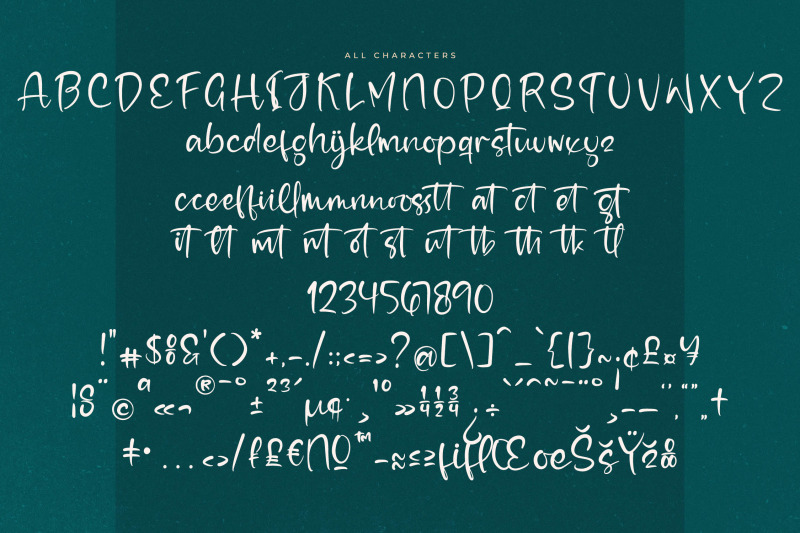 ALL CHARACTERS
ABCDEFGHIJKLMNOPQRSTUVWXYZ
abcdefghijklmnopqrstuvwxyz
cceeffiillmmnnoosstt at ct et gt
it lt mt nt ot st ut tb th tk tl
1234567890
!"#$%&'()*+,-./:;<=>?@[\]^_`{|}~¡¢£¤¥
¦§¨©ª«¬®¯°±²³´µ¶·¸¹º»¼½¾¿÷ˆˇ˘˜˙˚–—‘’‚“”„†
‡•…‹›⁄ƒ₤€№™−≈≤≥fiflŒœŠšŸž‰